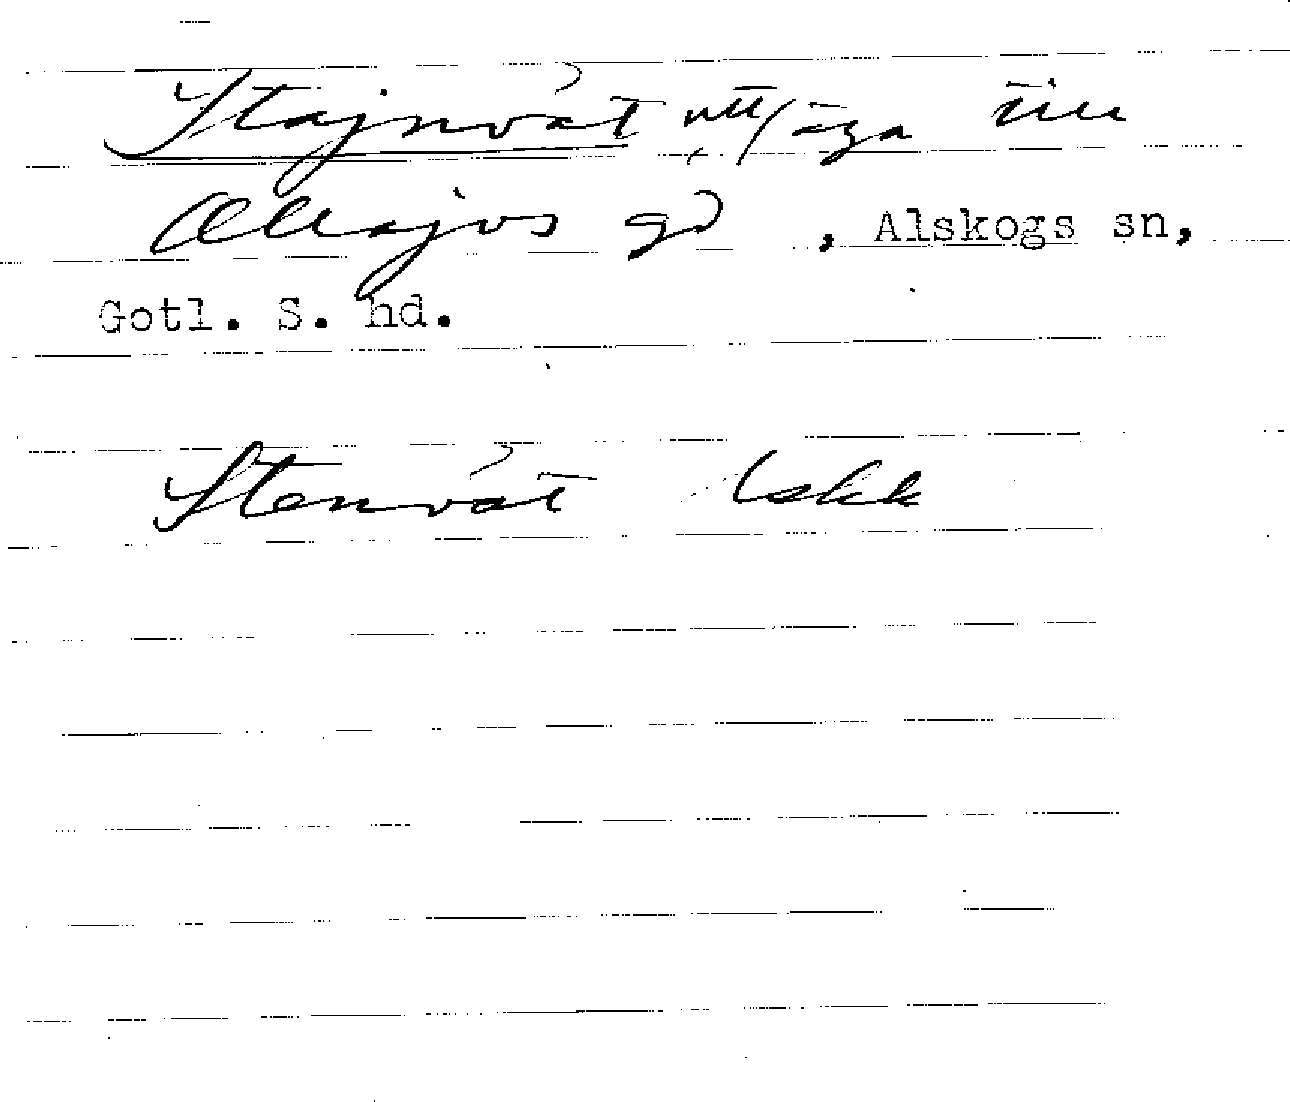 Stajnvāt utt/äga till
Allajvs gd , Alskogs sn,
Gotl. S. hd.
Stenvät Eskk